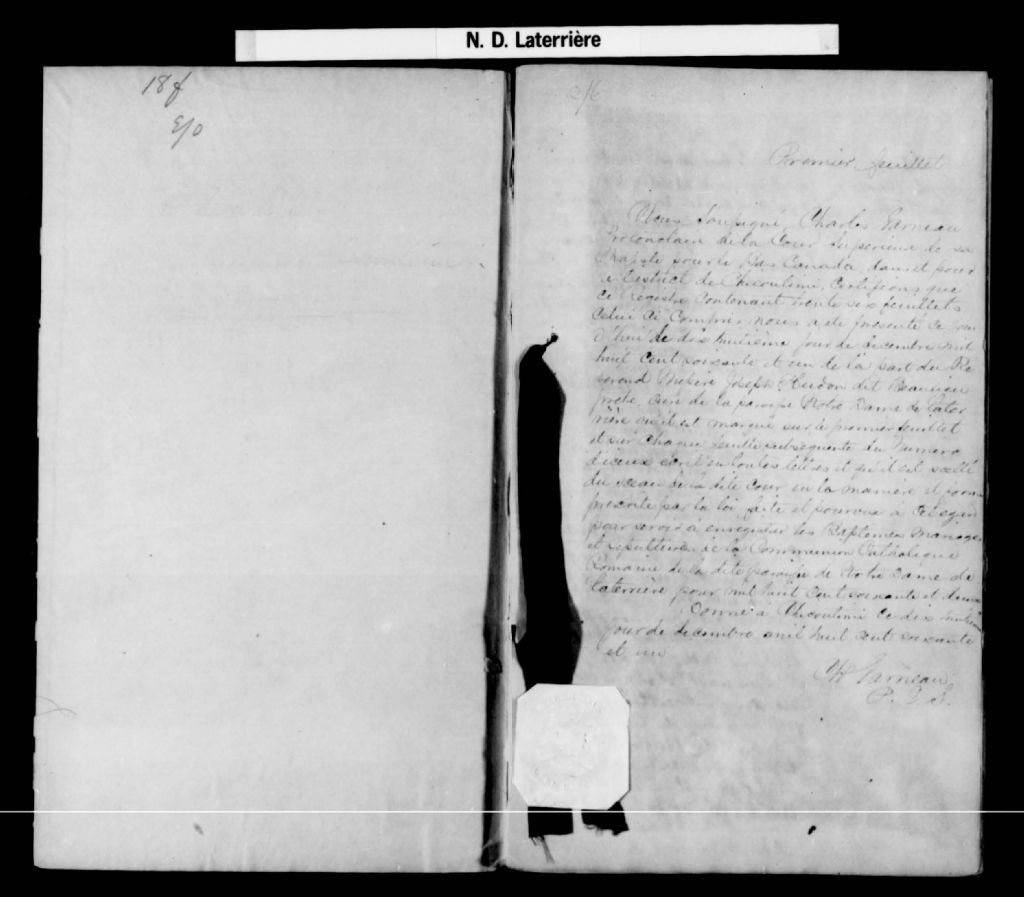 N. D. Laterrière
Premier feuillet
Nous Soussigné, Charles Garneau
Protonotaire de la Cour Superieure de sa
Majesté pour le Bas Canada, dans et pour
le District de Chicoutimi, Certifions que
ce Registre Contenant trente six feuillets
Celui Ci Compris nous a été presenté ce jour
d'hui le dix huitième jour de decembre mil
huit cent soixante et un de la part du Re
verend Messire Joseph Hudon dit Beaulieu
prêtre Curé de la paroisse Notre Dame de Later
rière qu'il est marqué sur le premier feuillet
et sur chaque feuillet subsequente du Numero
d'iceux écrit en toutes lettres et qu'il est scellé
du sceau de la dite Cour en la maniere et forme
prescrite par la loi faite et pourvue à cet egard
pour servir à enregistrer les Baptemes Mariages
et Sepultures de la Communion Catholique
Romaine de la dite paroisse de Notre Dame de
Laterrière pour mil huit Cent soixante et deux
Donné à Chicoutimi ce dix huitième
jour de decembre mil huit cent soixante
et un
Garneau
P. C. S.